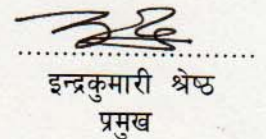 इन्द्रकुमारी श्रेष्ठ
प्रमुख